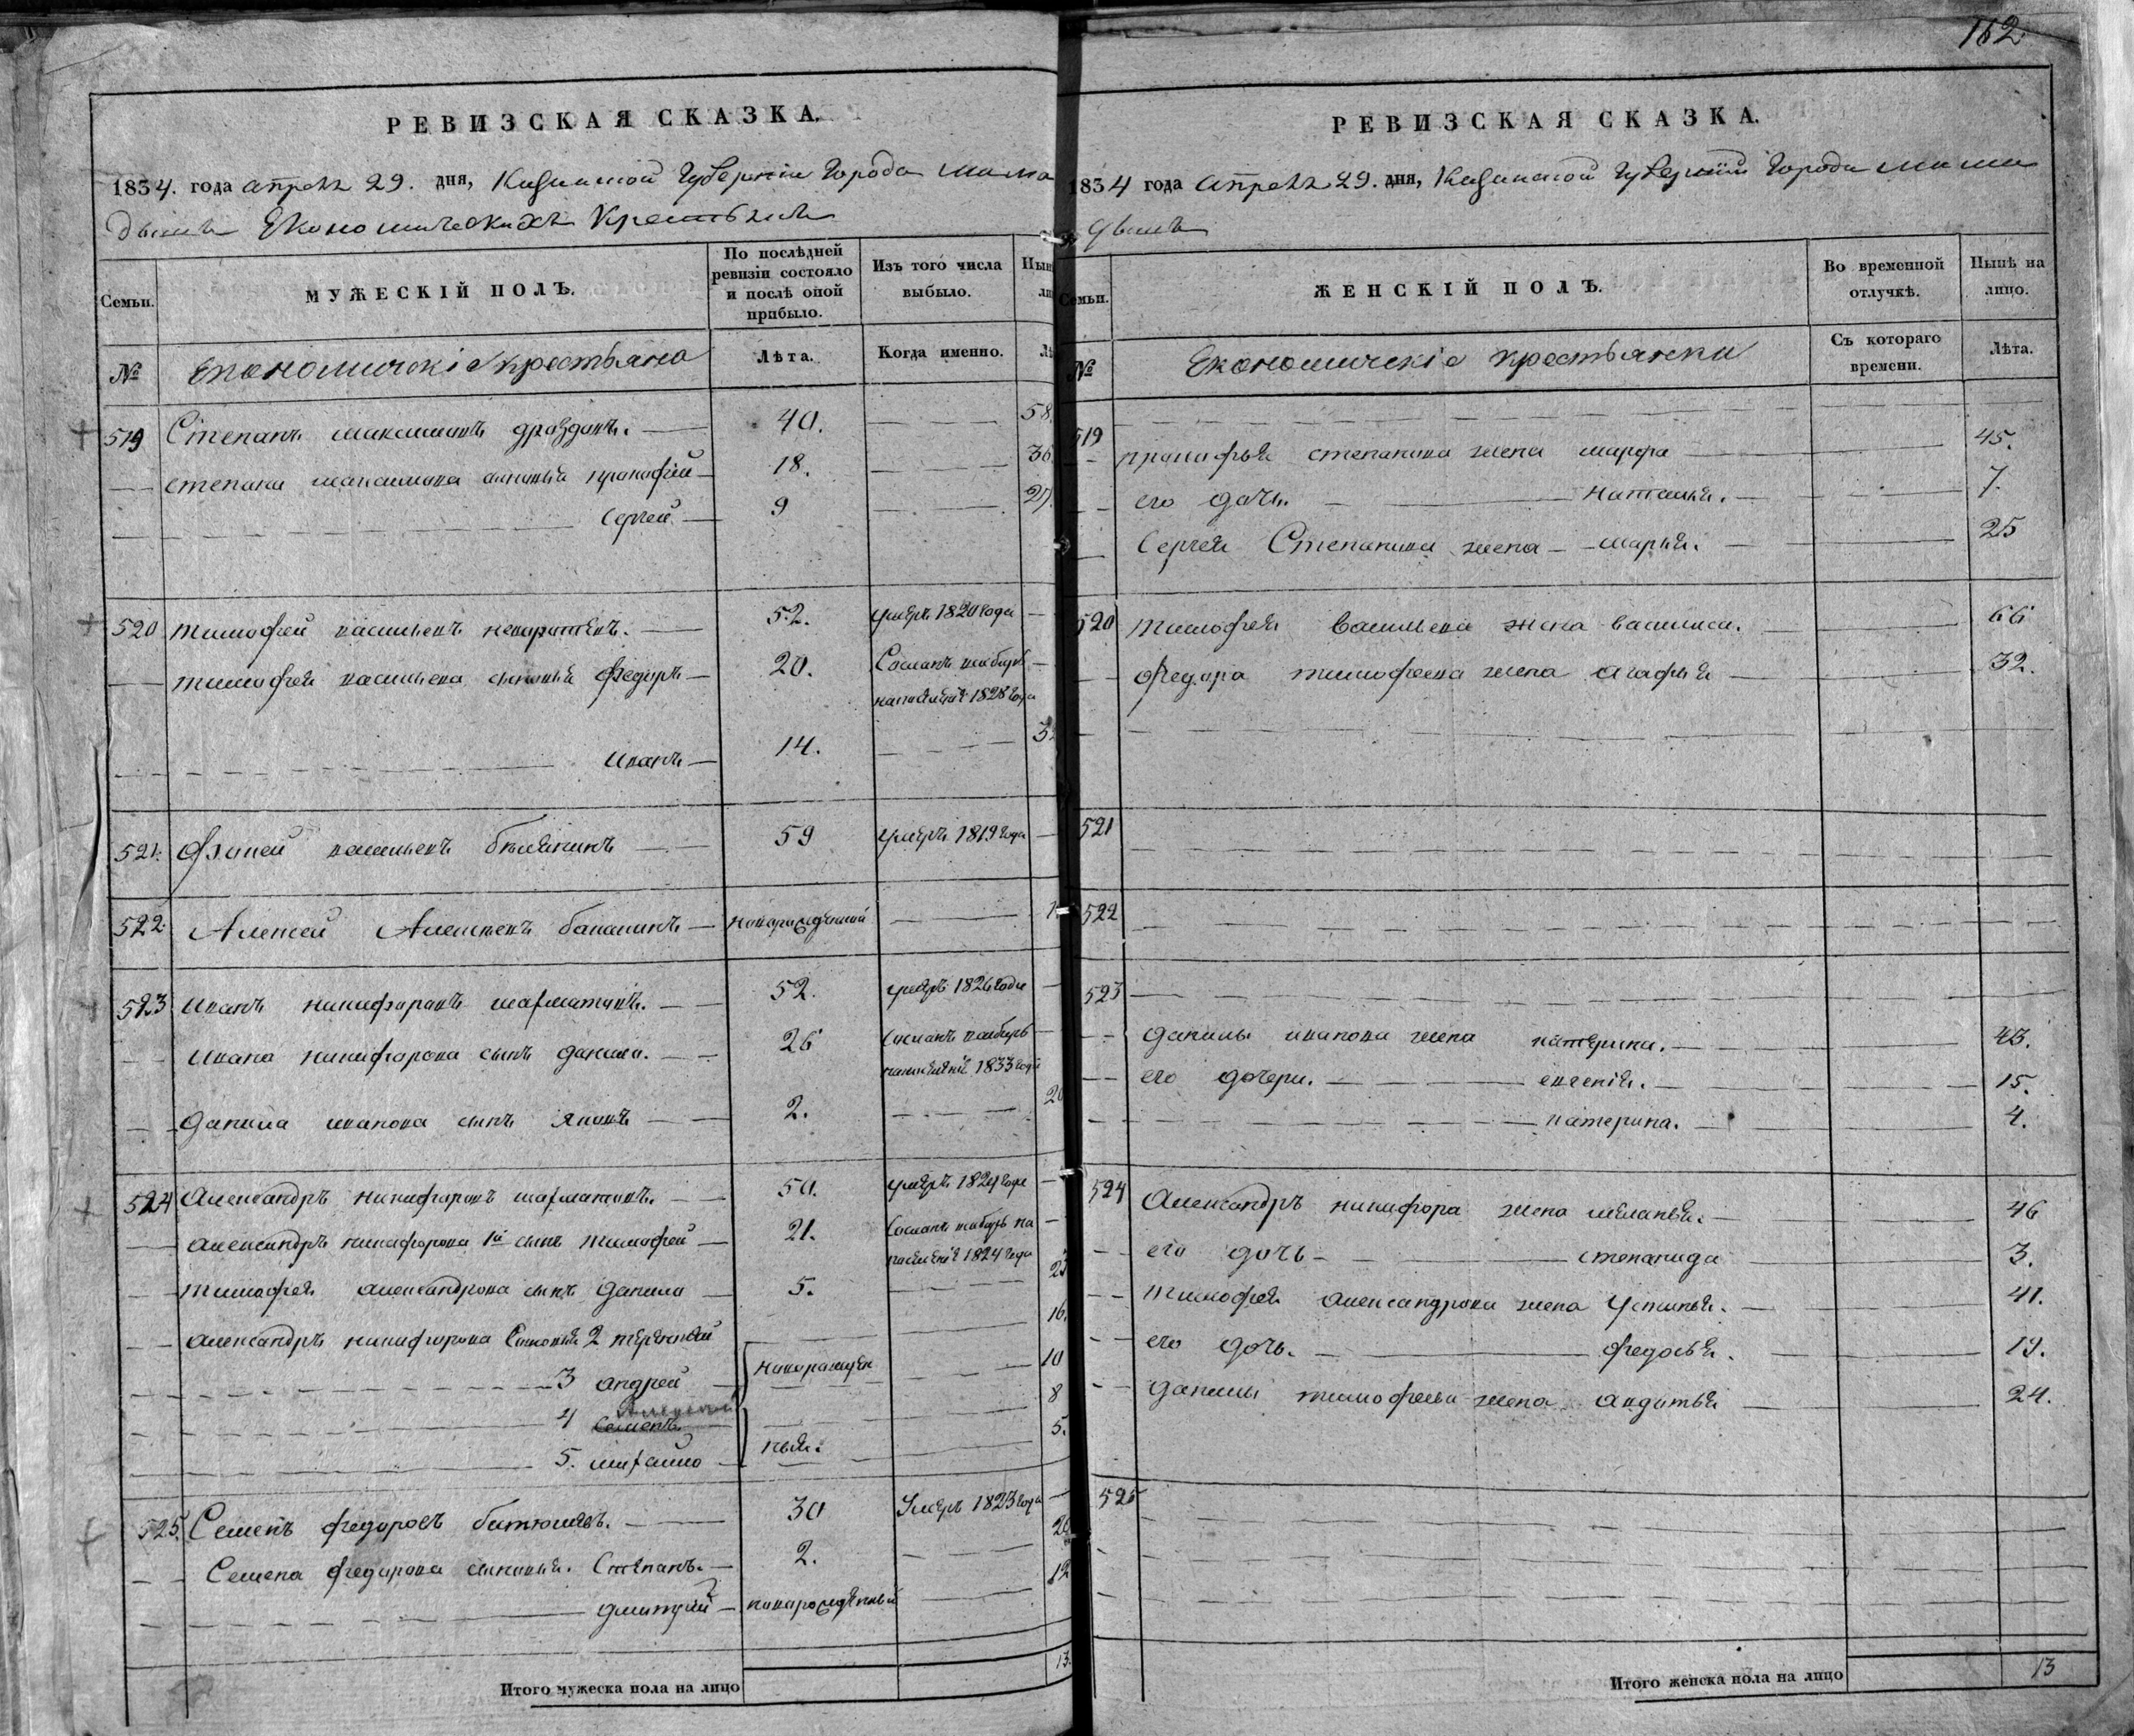 162
РЕВИЗСКАЯ СКАЗКА.
1834. года апреля 29. дня, Казанской Губернии Города Мама
дыша Економическихъ Крестьянъ
Семьи.
МУЖЕСКІЙ ПОЛЪ.
По послѣдней ревизіи состояло и послѣ оной прибыло.
Изъ того числа выбыло.
№
Економическіе крестьяне
Лѣта.
Когда именно.
519 Степанъ Максимовъ 40. 58
Степана Максимова сыновья Прокофей 18. 36
Сергей 9 27
520 Тимофей Васильевъ 52. умеръ 1820 года
Тимофея Васильева сыновья Федоръ 20. Сосланъ
на поселение 1828 года
Иванъ 14.
521. Васильевъ 59 умеръ 1819 года
522. Алексей новорожденный
523 Иванъ Никифоровъ 52. умеръ 1826 года
Ивана Никифорова сынъ Данила. 26 Сосланъ
на поселение 1833 года
Данила Иванова сынъ Яковъ 2. 20
524 Александръ Никифоровъ 50. умеръ
Александръ Никифорова 1й сынъ Тимофей 21. Сосланъ на
поселение 1824 года
Тимофея Александрова сынъ Данила 5. 23
Александръ Никифорова Сыновья 2 Терентей 16.
3 Андрей новорожден 10
4 Семенъ Алексей 8
5. Михайло ныя. 5.
525. Семенъ Федоровъ 30 Умеръ 1823 года
Семена Федорова сыновья. Степанъ. 2. 20
2 Дмитрий новорожденный 12
Итого мужеска пола на лицо 13.
РЕВИЗСКАЯ СКАЗКА.
1834 года апреля 29. дня, Казанской Губернии Города Мама
дыша
Семьи.
ЖЕНСКІЙ ПОЛЪ.
Во временной отлучкѣ.
Нынѣ на лицо.
№
Економическіе крестьянки
Съ котораго времени.
Лѣта.
519
Прокофья Степанова жена Марфа 45.
его дочь. Наталья. 7.
Сергея Степанова жена Марья. 25
520 Тимофея Васильева жена Василиса. 66
Федора Тимофеева жена Агафья 32.
521
522
523
Данилы Иванова жена Катерина. 43.
его дочери. Евгенія. 15.
Катерина. 4.
524 Александръ Никифора жена Меланья. 46
его дочь Степанида 3.
Тимофея Александрова жена Устинья. 41.
его дочь. Федосья. 19.
Данилы Тимофеева жена Авдотья 24.
525
Итого женска пола на лицо 13